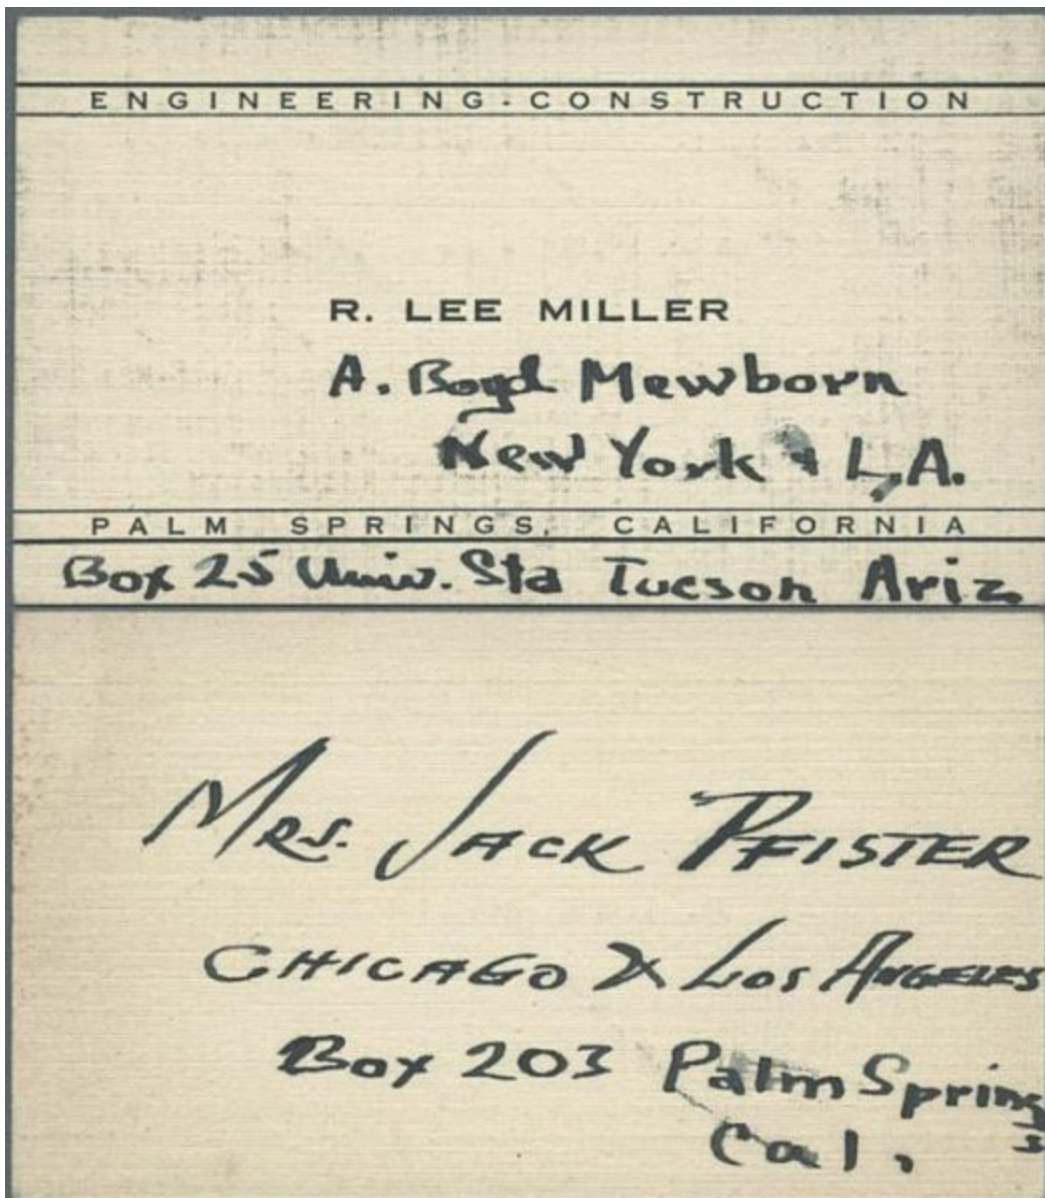 ENGINEERING-CONSTRUCTION
R. LEE MILLER
A. Boyd Mewborn
New York & L.A.
PALM SPRINGS, CALIFORNIA
Box 25 Univ. Sta Tucson Ariz
MRS. JACK PFISTER
CHICAGO & LOS ANGELES
Box 203 Palm Springs
Cal.